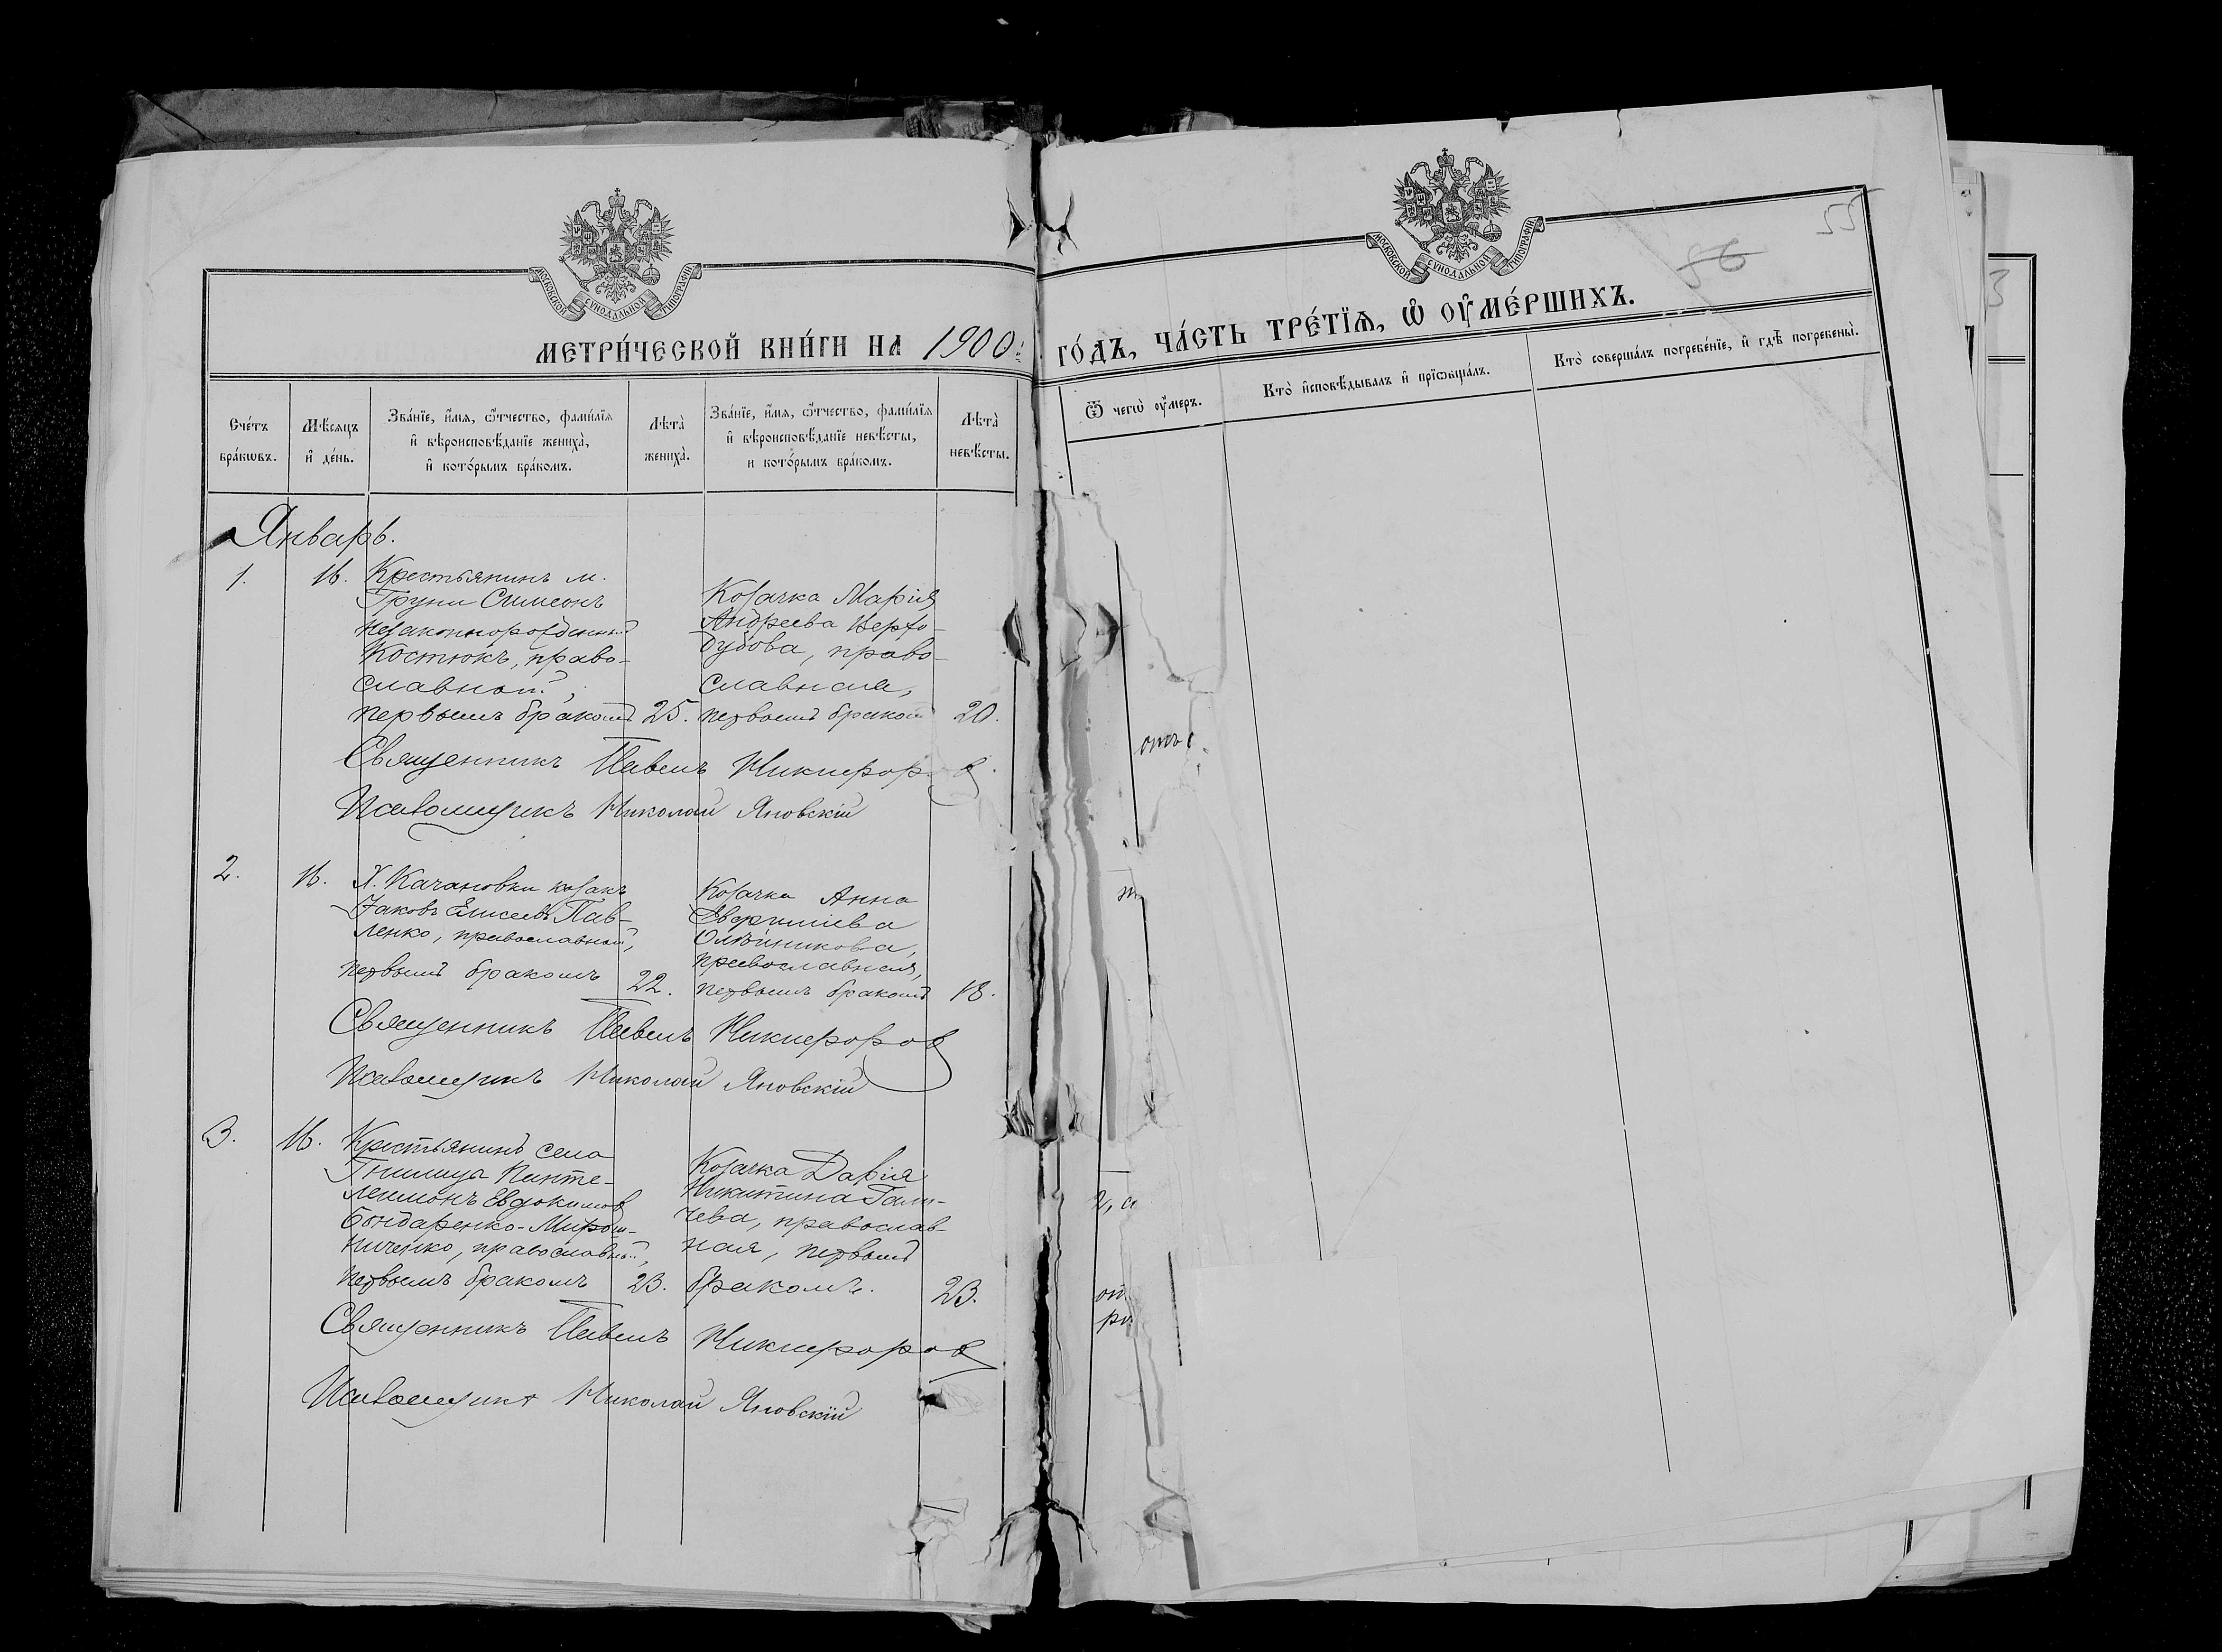 МОСКОВСКОЙ СУНОДАЛЬНОЙ ТИПОГРАФІИ
МЕТРИ́ЧЕСКОЙ КНИ́ГИ НА 1900:
Сче́тъ бра́кѡвъ.
Мѣ́сяцъ и҆ де́нь.
Зва́нїе, и҆́мѧ, ѻ҆́тчество, фамилїѧ и҆ вѣроисповѣ́данїе жениха̀, и҆ кото́рымъ бра́комъ.
Лѣта̀ жениха̀.
Зва́нїе, и҆́мѧ, ѻ҆́тчество, фамилїѧ и҆ вѣроисповѣ́данїе невѣ́сты, и кото́рымъ бра́комъ.
Лѣта̀ невѣ́сты.
Январь.
1.
16.
Крестьянинъ м.
Груни Симеонъ
незаконнорожденный
Костюкъ, право-
славной,
первымъ бракомъ
25.
Козачка Марія
Андреева Верто-
дубова, право-
славная,
первымъ бракомъ
20.
Священникъ Павелъ Никифоровъ
Псаломщикъ Николай Яновскій
2.
16.
Х. Качановки козакъ
Іаковъ Елисеевъ Пав-
ленко, православной,
первымъ бракомъ
22.
Козачка Анна
Евфиміева
Олѣйникова,
православная,
первымъ бракомъ
18.
Священникъ Павелъ Никифоровъ
Псаломщикъ Николай Яновскій
3.
16.
Крестьянинъ села
Гнилица Панте-
леимонъ Евдокимов
Бондаренко-Мирош-
ниченко, православный,
первымъ бракомъ
23.
Козачка Дарія
Никитина Гали-
чева, православ-
ная, первымъ
бракомъ.
23.
Священникъ Павелъ Никифоровъ
Псаломщикъ Николай Яновскій
55
86
МОСКОВСКОЙ СУНОДАЛЬНОЙ ТИПОГРАФІИ
ГО́ДЪ, ЧА́СТЬ ТРЕ́ТЇѦ, Ѡ҆ ОУ҆МЕ́РШИХЪ.
Ѿ чегѡ̀ оу҆́меръ.
Кто̀ и҆сповѣ́дывалъ и҆ прїѡбща́лъ.
Кто̀ соверша́лъ погребе́нїе, и҆ гдѣ̀ погребены̀.
отъ
3